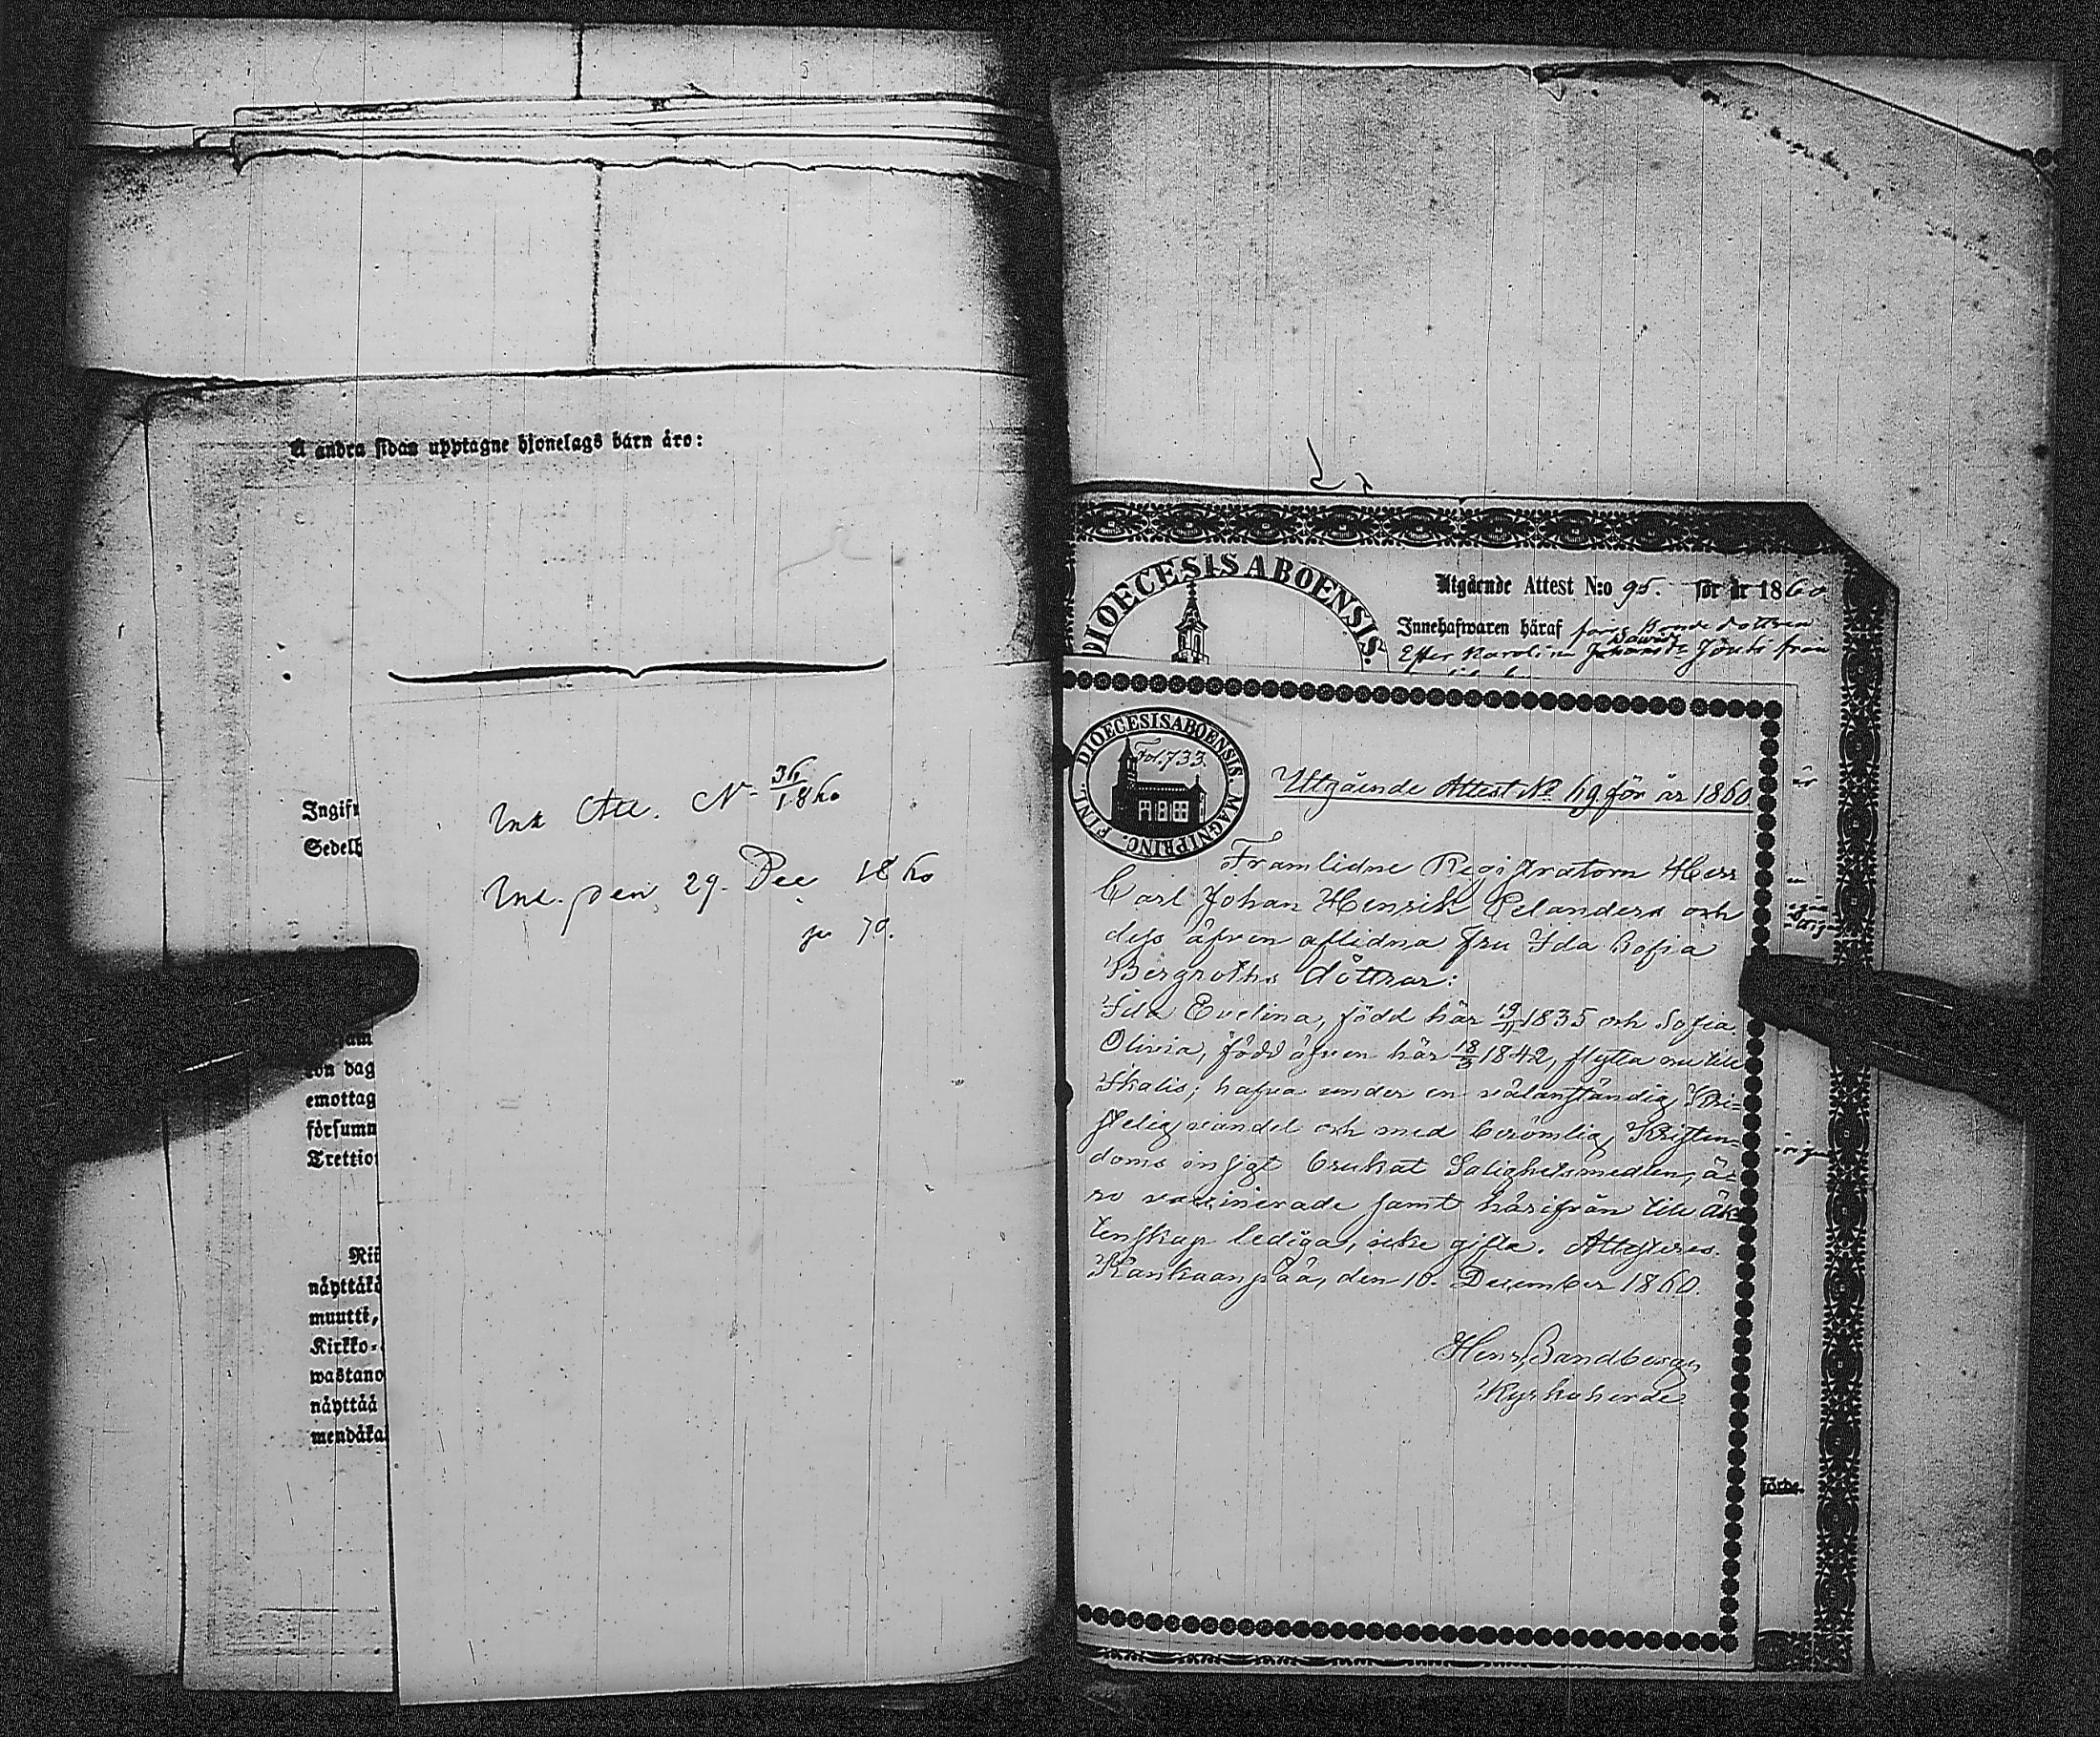 Å andra sidan upptagne hjonelags barn äro:
Ingift
Sedelb
Ink Att. No 36/1860
Ink. den 29. Dec 1860
p 70.
dag
emottag
försumm
Trettio
Rii
näyttäkö
muutti,
Kirkko-
wastano
näyttää
mendäkä
DIOECESIS ABOENSIS.
Utgående Attest N:o 95. för år 1860
Innehafwaren häraf förre Bonde dottren
Ester Karolin Davids Jouti från
DIOECESIS ABOENSIS. MAGNI PRINC. FINL.
Fol. 733.
Utgående Attest No 69 för år 1860
Framlidne Registratorn Herr
Carl Johan Henrik Pelanders och
dess äfven aflidna fru Ida Sofia
Bergroths döttrar:
Ida Evelina, född här 19/11 1835 och Sofia
Olivia, född äfven här 18/3 1842, flytta nu till
Ikalis; hafva under en välanständig Kri-
stelig vandel och med berömlig Kristen-
doms insigt brukat Salighetsmedlen, ä-
ro vaccinerade samt härifrån till äk-
tenskap lediga, icke gifta. Attesteres.
Kankaanpää, den 10. December 1860.
Henr. Sandberg,
Kyrkoherde